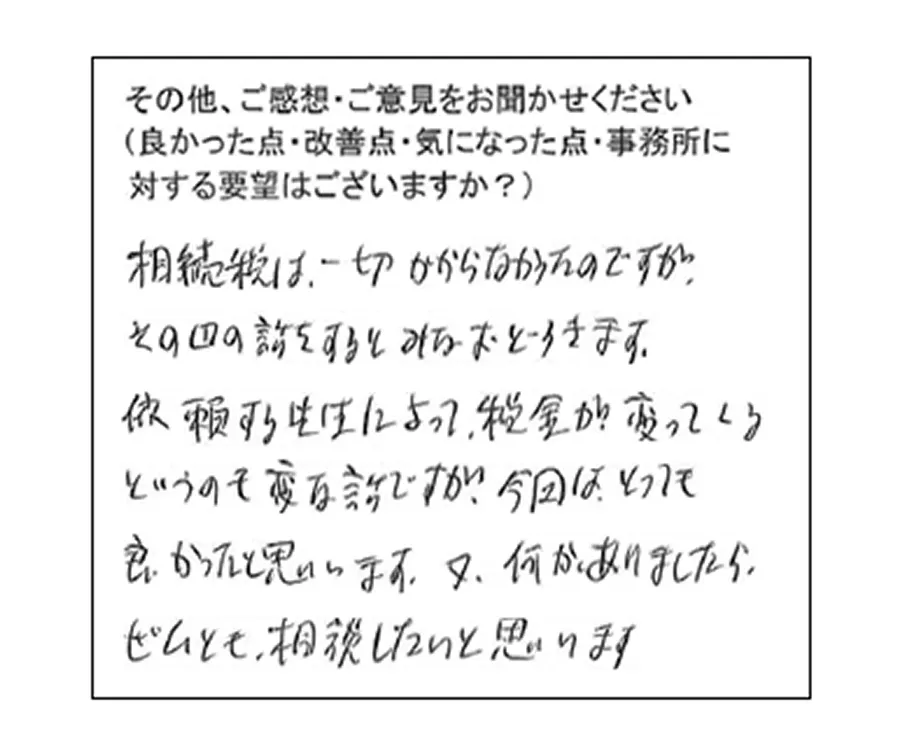 その他、ご感想・ご意見をお聞かせください
(良かった点・改善点・気になった点・事務所に
対する要望はございますか？)
相続税は、一切かからなかったのですが、
その四の話をするとみなおどろきます。
依頼する先生によって、税金が変ってくる
というのも変な話ですが、今回は、とっても
良かったと思います。又、何かありましたら、
ぜひとも、相談したいと思います